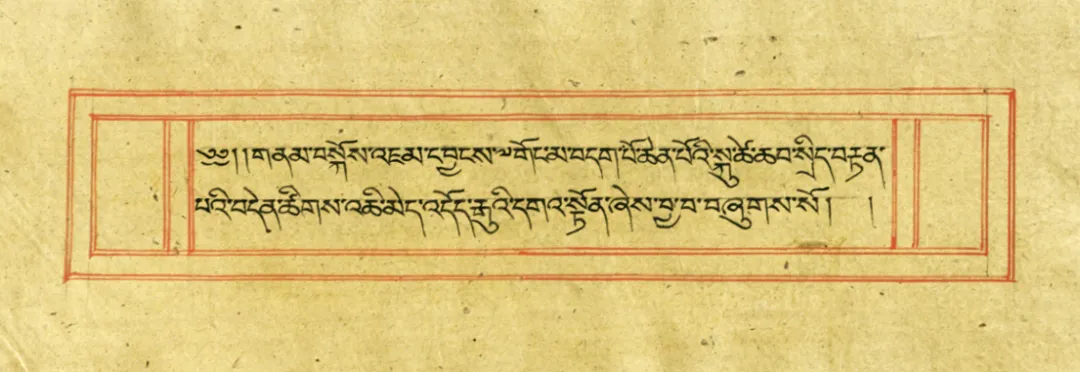 ༄༅། །གནམ་བསྐོས་འཇམ་དབྱངས་༧གོང་མ་བདག་པོ་ཆེན་པོའི་སྐུ་ཚེ་ཆབ་སྲིད་བརྟན་
པའི་བདེན་ཚིགས་འཆི་མེད་འདོད་རྒུའི་དགའ་སྟོན་ཞེས་བྱ་བ་བཞུགས་སོ། །